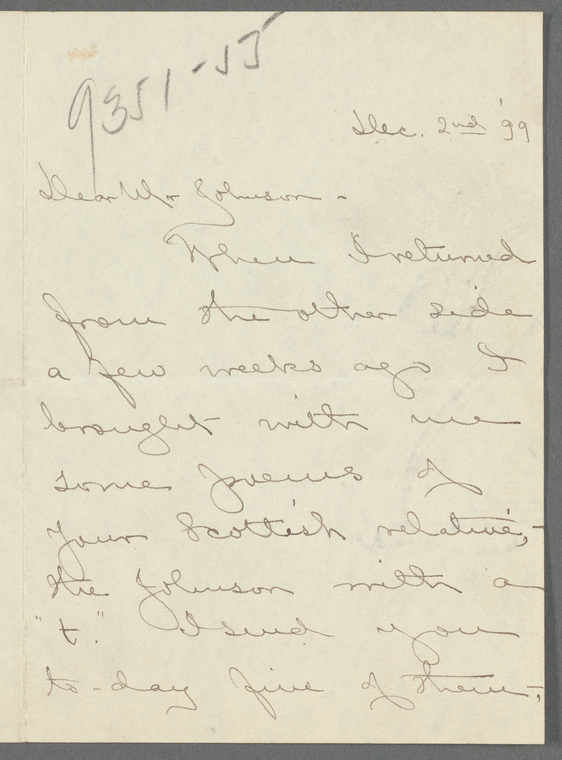 9351-55
Dec. 2nd '99
Dear Mr Johnson -
When I returned
from the other side
a few weeks ago I
brought with me
some poems of
your Scottish relative,-
the Johnson with a
"t." I send you
to-day five of them,